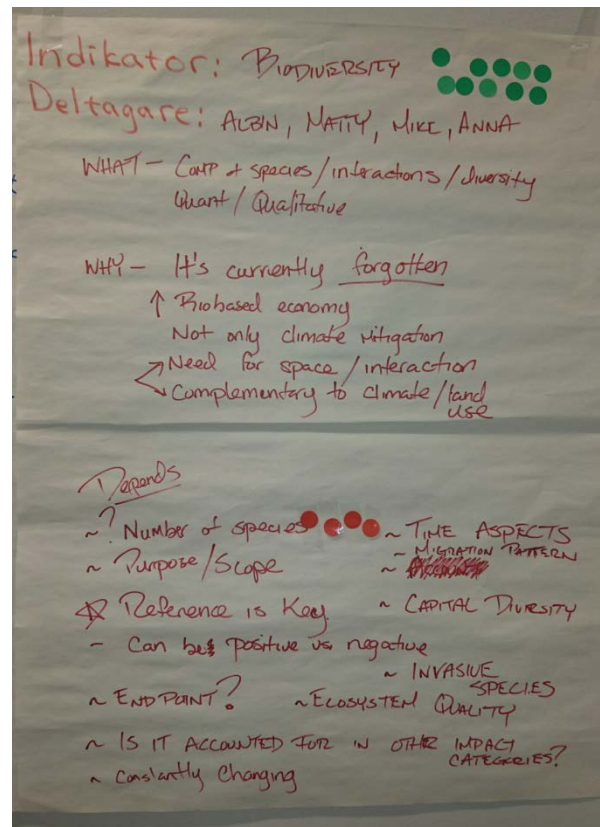 Indikator: BIODIVERSITY
Deltagare: ALBIN, MATTY, MIKE, ANNA
WHAT - COMP of species/interactions/diversity
Quant/Qualitative
WHY - It's currently forgotten
↑ Biobased economy
Not only climate mitigation
Need for space/interaction
Complementary to climate/land use
Depends
~ ? Number of species
~ Purpose/Scope
☆ Reference is Key
- Can be positive vs. negative
~ ENDPOINT?
~ TIME ASPECTS
~ MIGRATION PATTERN
~
~ CAPITAL DIVERSITY
~ INVASIVE SPECIES
~ ECOSYSTEM QUALITY
~ IS IT ACCOUNTED FOR IN OTHER IMPACT CATEGORIES?
~ Constantly Changing